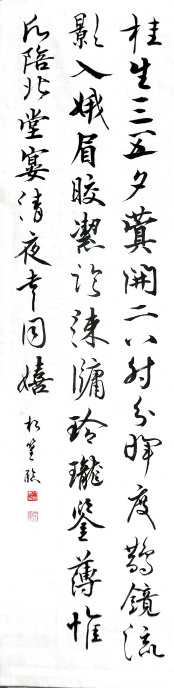 桂生三五夕蓂開二八时分暉度鵲鏡流
影入娥眉皎潔臨疎牖玲瓏鑒薄帷
願陪北堂宴清夜幸同嬉